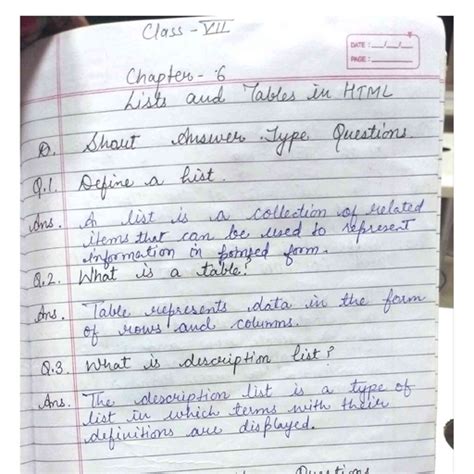 Class - VII
DATE: __/__/__
PAGE: ______
Chapter - 6
Lists and Tables in HTML
D. Shout Answer Type Questions
Q.1. Define a list.
Ans. A list is a collection of related
items that can be used to represent
information in form.
Q.2. What is a table?
Ans. Table represents data in the form
of rows and columns.
Q.3. What is description list?
Ans. The description list is a type of
list in which terms with their
definitions are displayed.
Questions